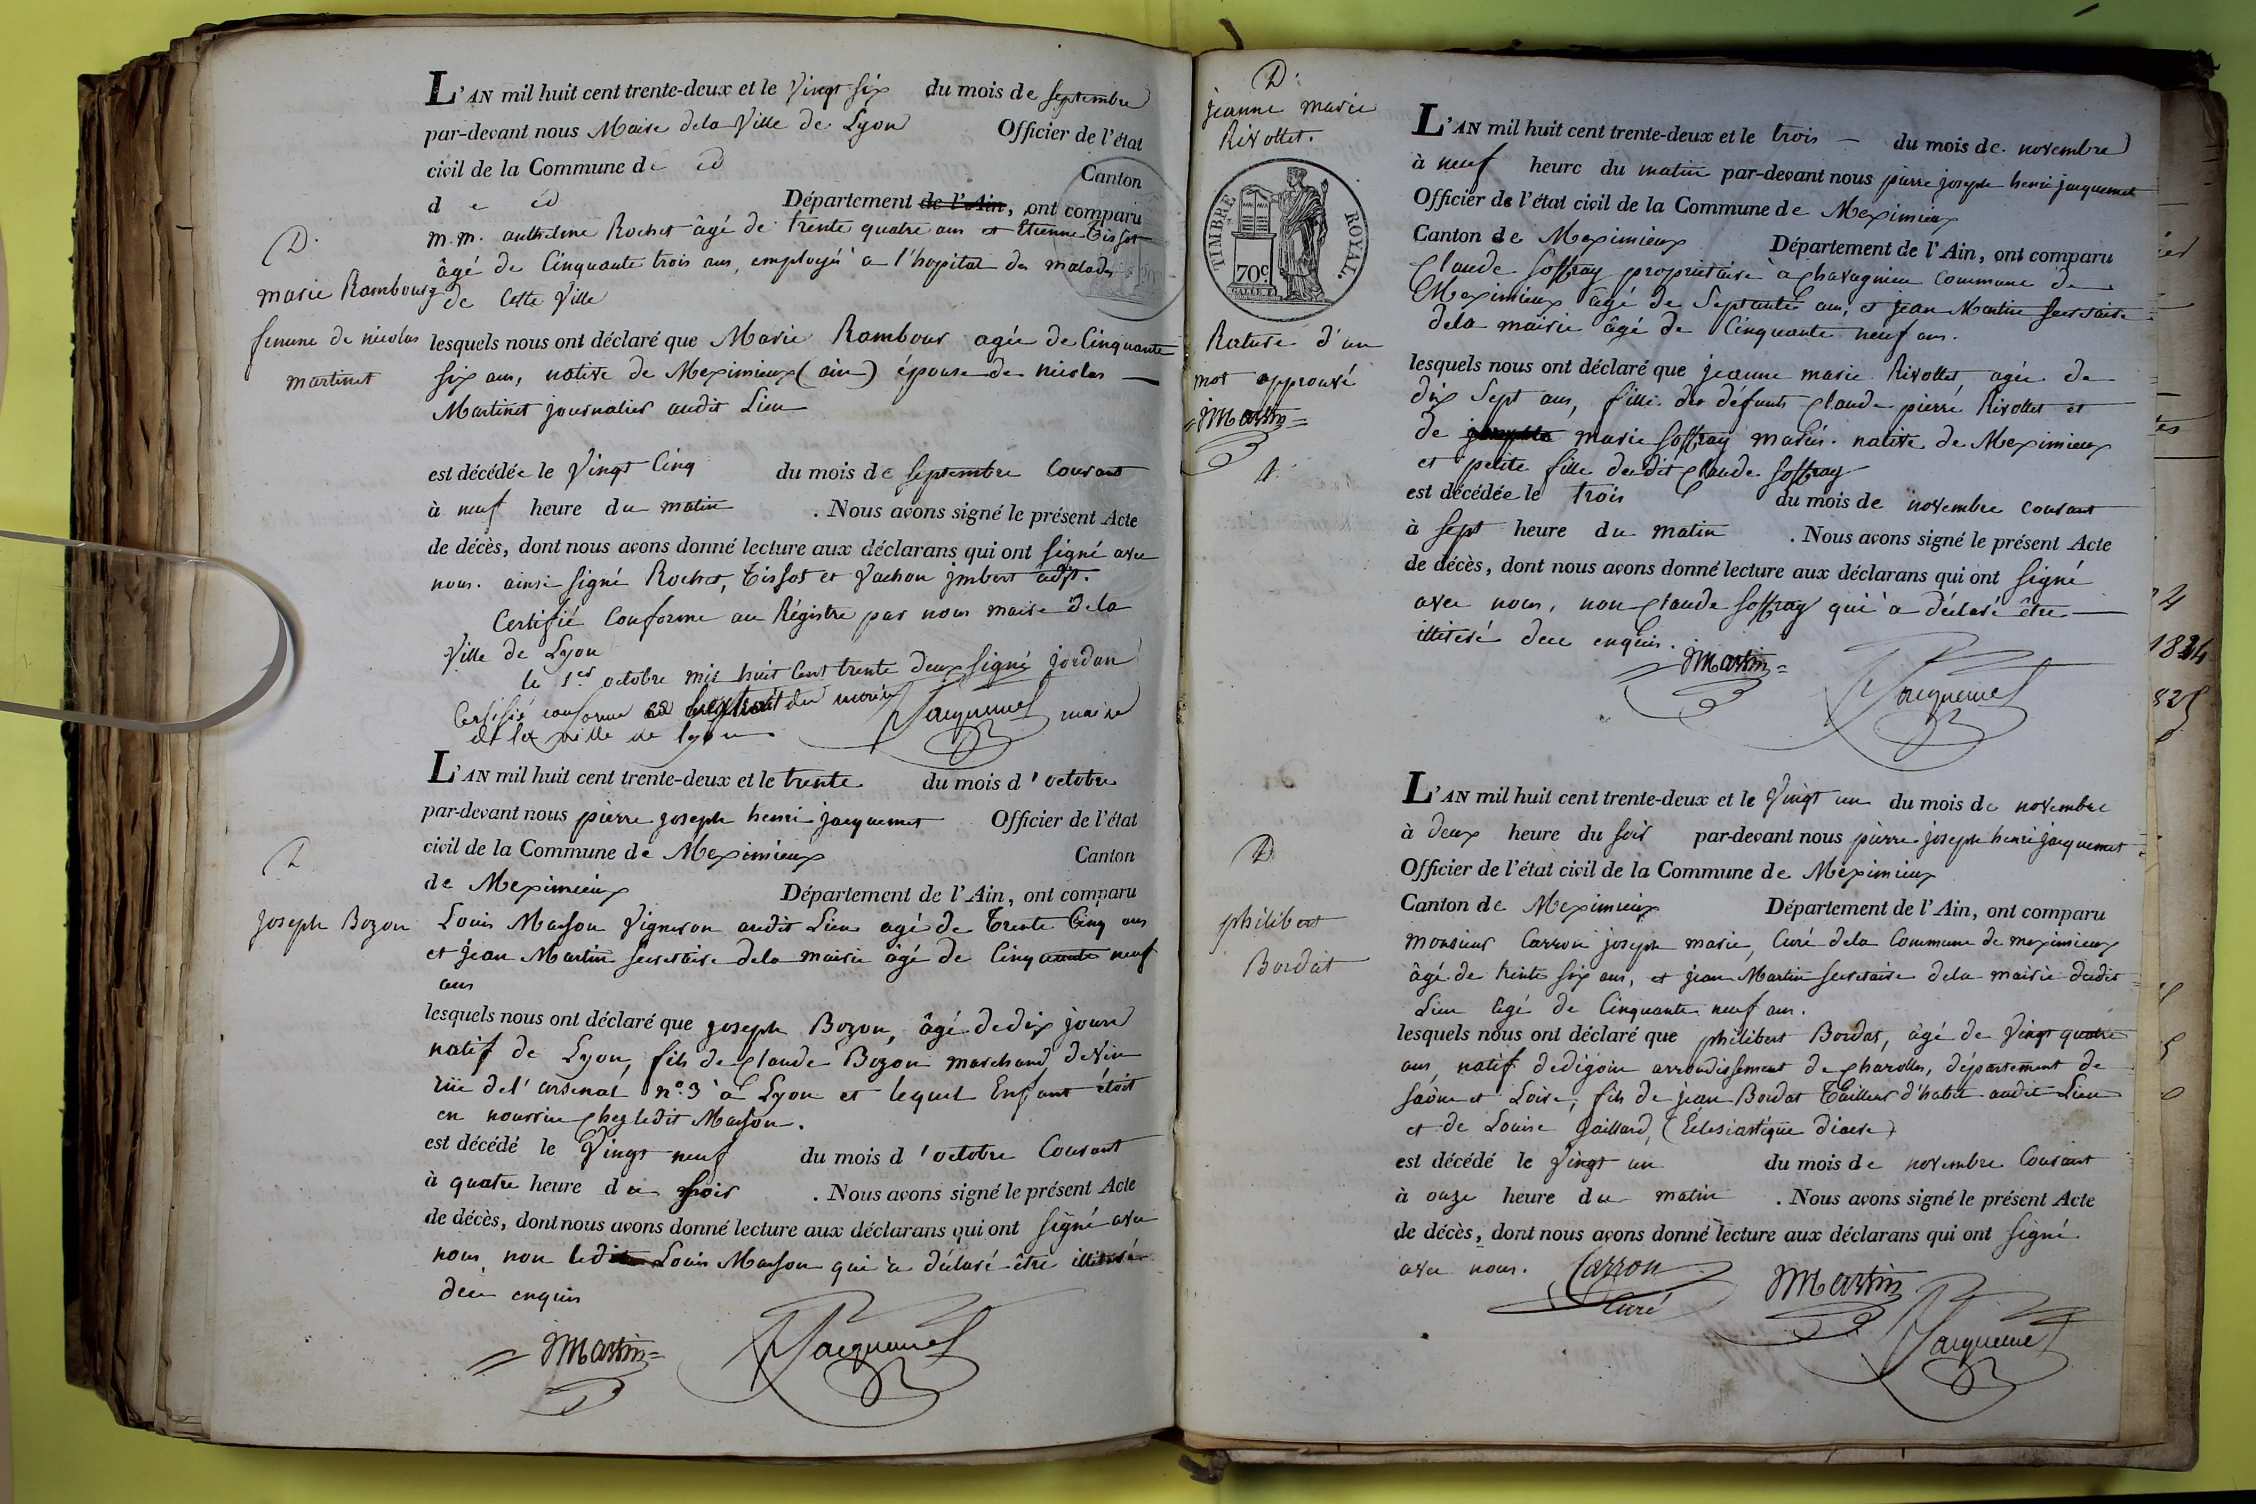 L'AN mil huit cent trente-deux et le Vingt six du mois de septembre
par-devant nous Maire dela Ville de Lyon Officier de l'état
civil de la Commune de id Canton
d e id Département de l'Ain, ont comparu
m.m. anthelme Rochet âgé de trente quatre ans et Etienne Tissot
âgé de Cinquante trois ans, employés a l'hopital des malades
de Cette Ville
D.
marie Rambourg
femme de nicolas
martinet
lesquels nous ont déclaré que Marie Rambour agée de Cinquante
six ans, native de Meximieux (ain) épouse de nicolas
Martinet journalier audit Lieu
est décédée le Vingt Cinq du mois de septembre Courant
à neuf heure du matin . Nous avons signé le présent Acte
de décès, dont nous avons donné lecture aux déclarans qui ont signé avec
nous. ainsi signé Rochet, Tissot et Vachon jmbert adjt.
Certifié Conforme au Régistre par nous maire dela
Ville de Lyon
le 1er octobre mil huit Cent trente deux signé jordan
Certifié conforme extrait du
de la ville de lyon
Jacquemet maire
L'AN mil huit cent trente-deux et le trente du mois d'octobre
par-devant nous pierre joseph henri jacquemet Officier de l'état
civil de la Commune de Meximieux Canton
de Meximieux Département de l'Ain, ont comparu
D.
joseph Bozon
Louis Masson Vigneron audit Lieu agé de Trente Cinq ans
et jean Martin secretaire dela mairie âgé de Cinquante neuf
ans
lesquels nous ont déclaré que joseph Bozon, âgé dedix jours
natif de Lyon, fils de Claude Bozon marchand devin
rüe del'arsenal n.o 3 à Lyon et lequel Enfant étoit
en nourrice chez ledit Masson.
est décédé le Vingt neuf du mois d'octobre Courant
à quatre heure du soir . Nous avons signé le présent Acte
de décès, dont nous avons donné lecture aux déclarans qui ont signé avec
nous, non ledit Louis Masson qui a déclaré être illitéré
dece enquis
jMartin
Jacquemet
D.
jeanne marie
Rivollet.
TIMBRE ROYAL.
70c
Rature d'un
mot approuvé
jMartin
L'AN mil huit cent trente-deux et le trois du mois de novembre
à neuf heure du matin par-devant nous pierre joseph henri jacquemet
Officier de l'état civil de la Commune de Meximieux
Canton de Meximieux Département de l'Ain, ont comparu
Claude Soffray propriétaire à Chavagnieu Commune de
Meximieux âgé de Septante ans, et jean Martin secretaire
dela mairie âgé de Cinquante neuf ans.
lesquels nous ont déclaré que jeanne marie Rivollet, agée de
dix Sept ans, fille des défunts Claude pierre Rivollet et
de marie Soffray mariés. native de Meximieux
et petite fille dudit Claude Soffray
est décédée le trois du mois de novembre courant
à Sept heure du matin . Nous avons signé le présent Acte
de décès, dont nous avons donné lecture aux déclarans qui ont signé
avec nous, non Claude Soffray qui a déclaré être
illitéré dece enquis.
jMartin
Jacquemet
D
philibert
Bordat
L'AN mil huit cent trente-deux et le Vingt un du mois de novembre
à deux heure du soir par-devant nous pierre joseph henri jacquemet
Officier de l'état civil de la Commune de Meximieux
Canton de Meximieux Département de l'Ain, ont comparu
Monsieur Carron joseph marie, Curé dela Commune de meximieux
âgé de trente six ans, et jean Martin secretaire dela mairie dudit
Lieu âgé de Cinquante neuf ans.
lesquels nous ont déclaré que philibert Bordat, âgé de Vingt quatre
ans, natif dedigoin arrondissement de Charolles, département de
saône et Loire, fils de jean Bordat Tailleur d'habit audit Lieu
et de Louise Gaillard, (Eclesiastique diacre)
est décédé le Vingt un du mois de novembre Courant
à onze heure du matin . Nous avons signé le présent Acte
de décès, dont nous avons donné lecture aux déclarans qui ont signé
avec nous.
Carron
Curé
jMartin
Jacquemet